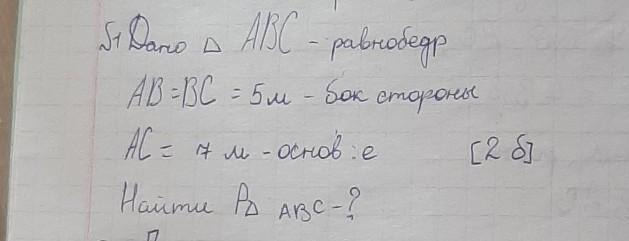 №1 Дано △ ABC - равнобедр
AB = BC = 5м - бок стороны
AC = 7 м - основ:е [2 б]
Найти P△ ABC - ?